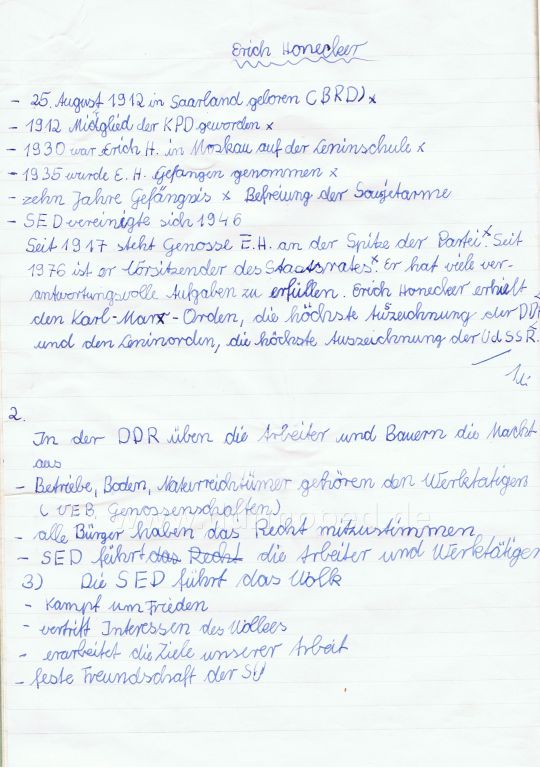 Erich Honecker
- 25. August 1912 in Saarland geboren (BRD) x
- 1912 Midglied der KPD geworden x
- 1930 war Erich H. in Moskau auf der Leninschule x
- 1935 wurde E. H. Gefangen genommen x
- zehn Jahre Gefängnis x Befreiung der Sowjetarme
- SED vereinigte sich 1946
Seit 1917 steht Genosse E.H. an der Spitze der Partei. x Seit
1976 ist er Vorsitzender des Staatsrates. x Er hat viele ver-
antwortungsvolle Aufgaben zu erfüllen. Erich Honecker erhielt
den Karl-Marx-Orden, die höchste Auszeichnung der DDR
und den Leninorden, die höchste Auszeichnung der UdSSR.
2.
In der DDR üben die Arbeiter und Bauern die Macht
aus
- Betriebe, Boden, Naturreichtümer gehören den Werktätigen
(VEB, Genossenschaften)
- alle Bürger haben das Recht mitzustimmen
- SED führt das Recht die Arbeiter und Werktätigen
3) Die SED führt das Volk
- Kampf um Frieden
- vertritt Interessen des Volkes
- erarbeitet die Ziele unserer Arbeit
- feste Freundschaft der SU